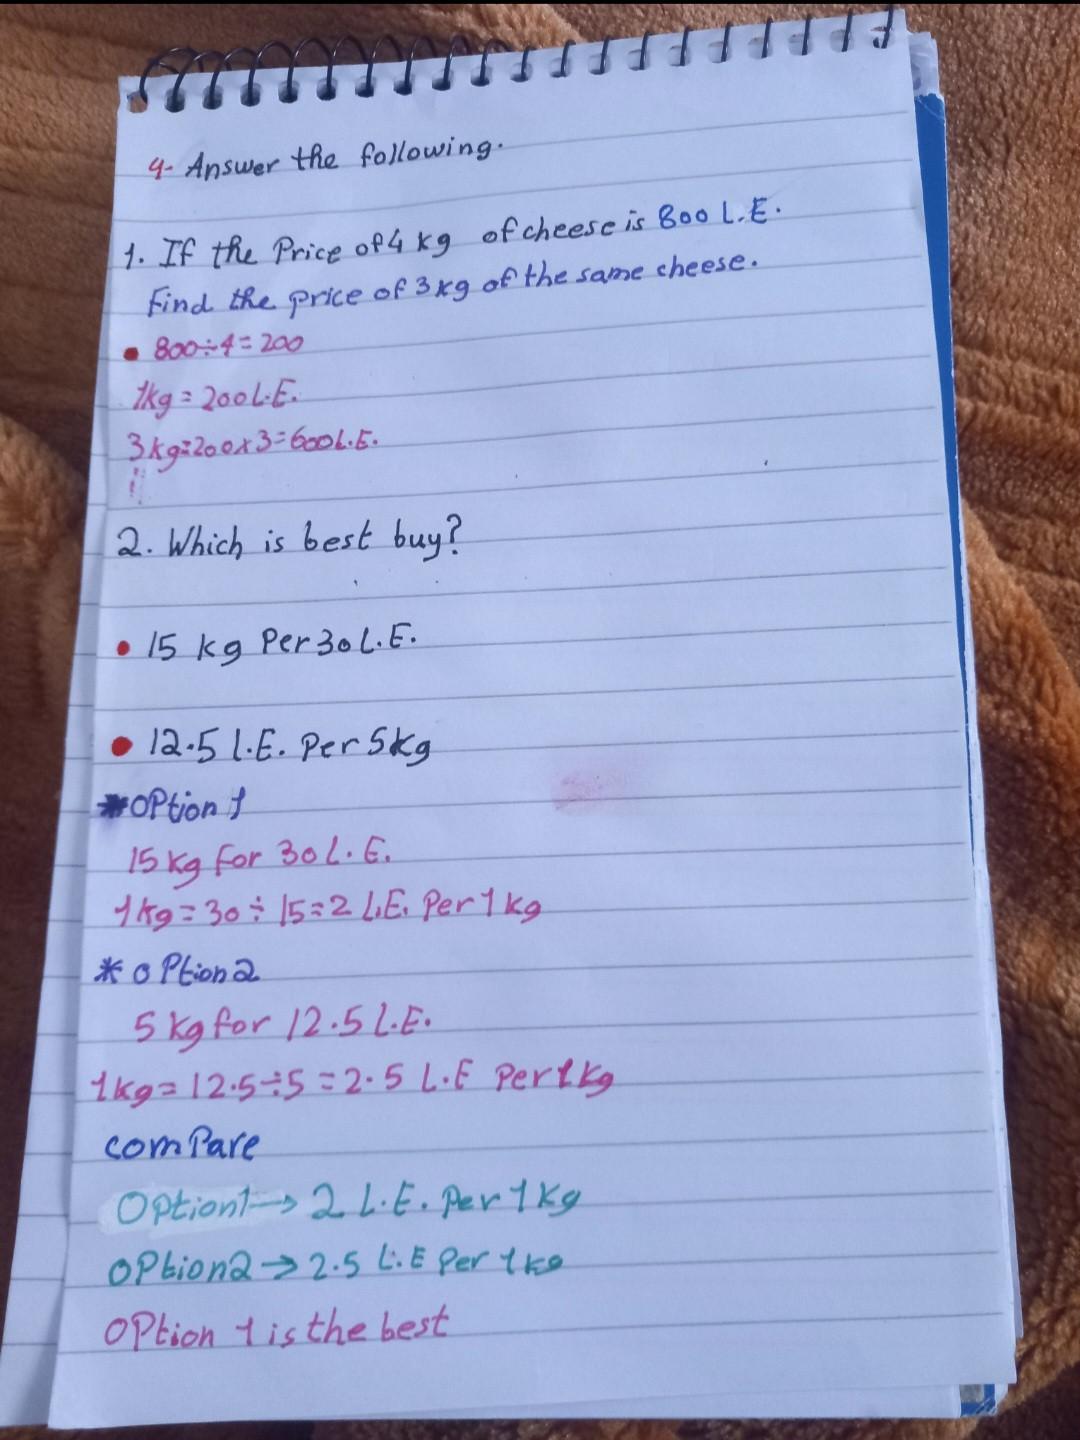 4- Answer the following.
1. If the Price of 4 kg of cheese is 800 L.E.
Find the price of 3kg of the same cheese.
• 800÷4=200
1kg = 200 L.E.
3kg=200x3=600L.E.
2. Which is best buy?
• 15 kg Per 30 L.E.
• 12.5 L.E. Per 5kg
* OPtion 1
15 kg for 30 L.E.
1kg = 30 ÷ 15 = 2 L.E. Per 1 kg
* oPtion 2
5 kg for 12.5 L.E.
1kg = 12.5÷5 = 2.5 L.E Per 1kg
comPare
Option1→ 2 L.E. Per 1kg
OPtion2 → 2.5 L.E Per 1kg
OPtion 1 is the best